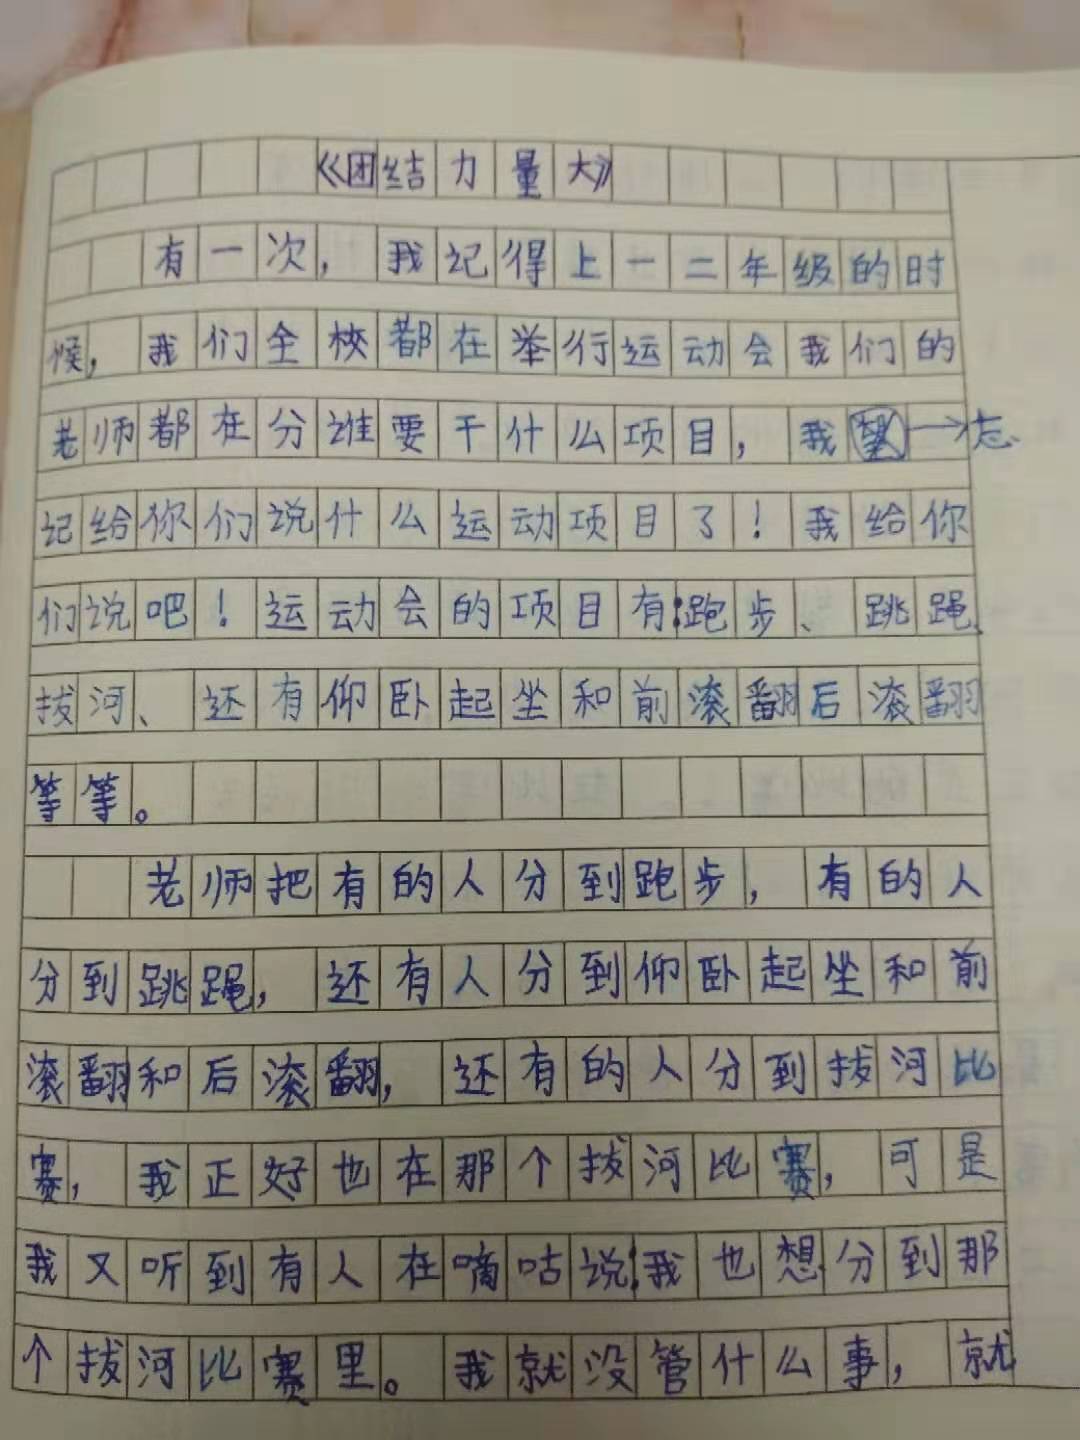 《团结力量大》
有一次，我记得上一二年级的时
候，我们全校都在举行运动会我们的
老师都在分谁要干什么项目，我望→忘
记给你们说什么运动项目了！我给你
们说吧！运动会的项目有：跑步、跳绳、
拔河、还有仰卧起坐和前滚翻后滚翻
等等。
老师把有的人分到跑步，有的人
分到跳绳，还有人分到仰卧起坐和前
滚翻和后滚翻，还有的人分到拔河比
赛，我正好也在那个拔河比赛，可是
我又听到有人在嘀咕说：我也想分到那
个拔河比赛里。我就没管什么事，就